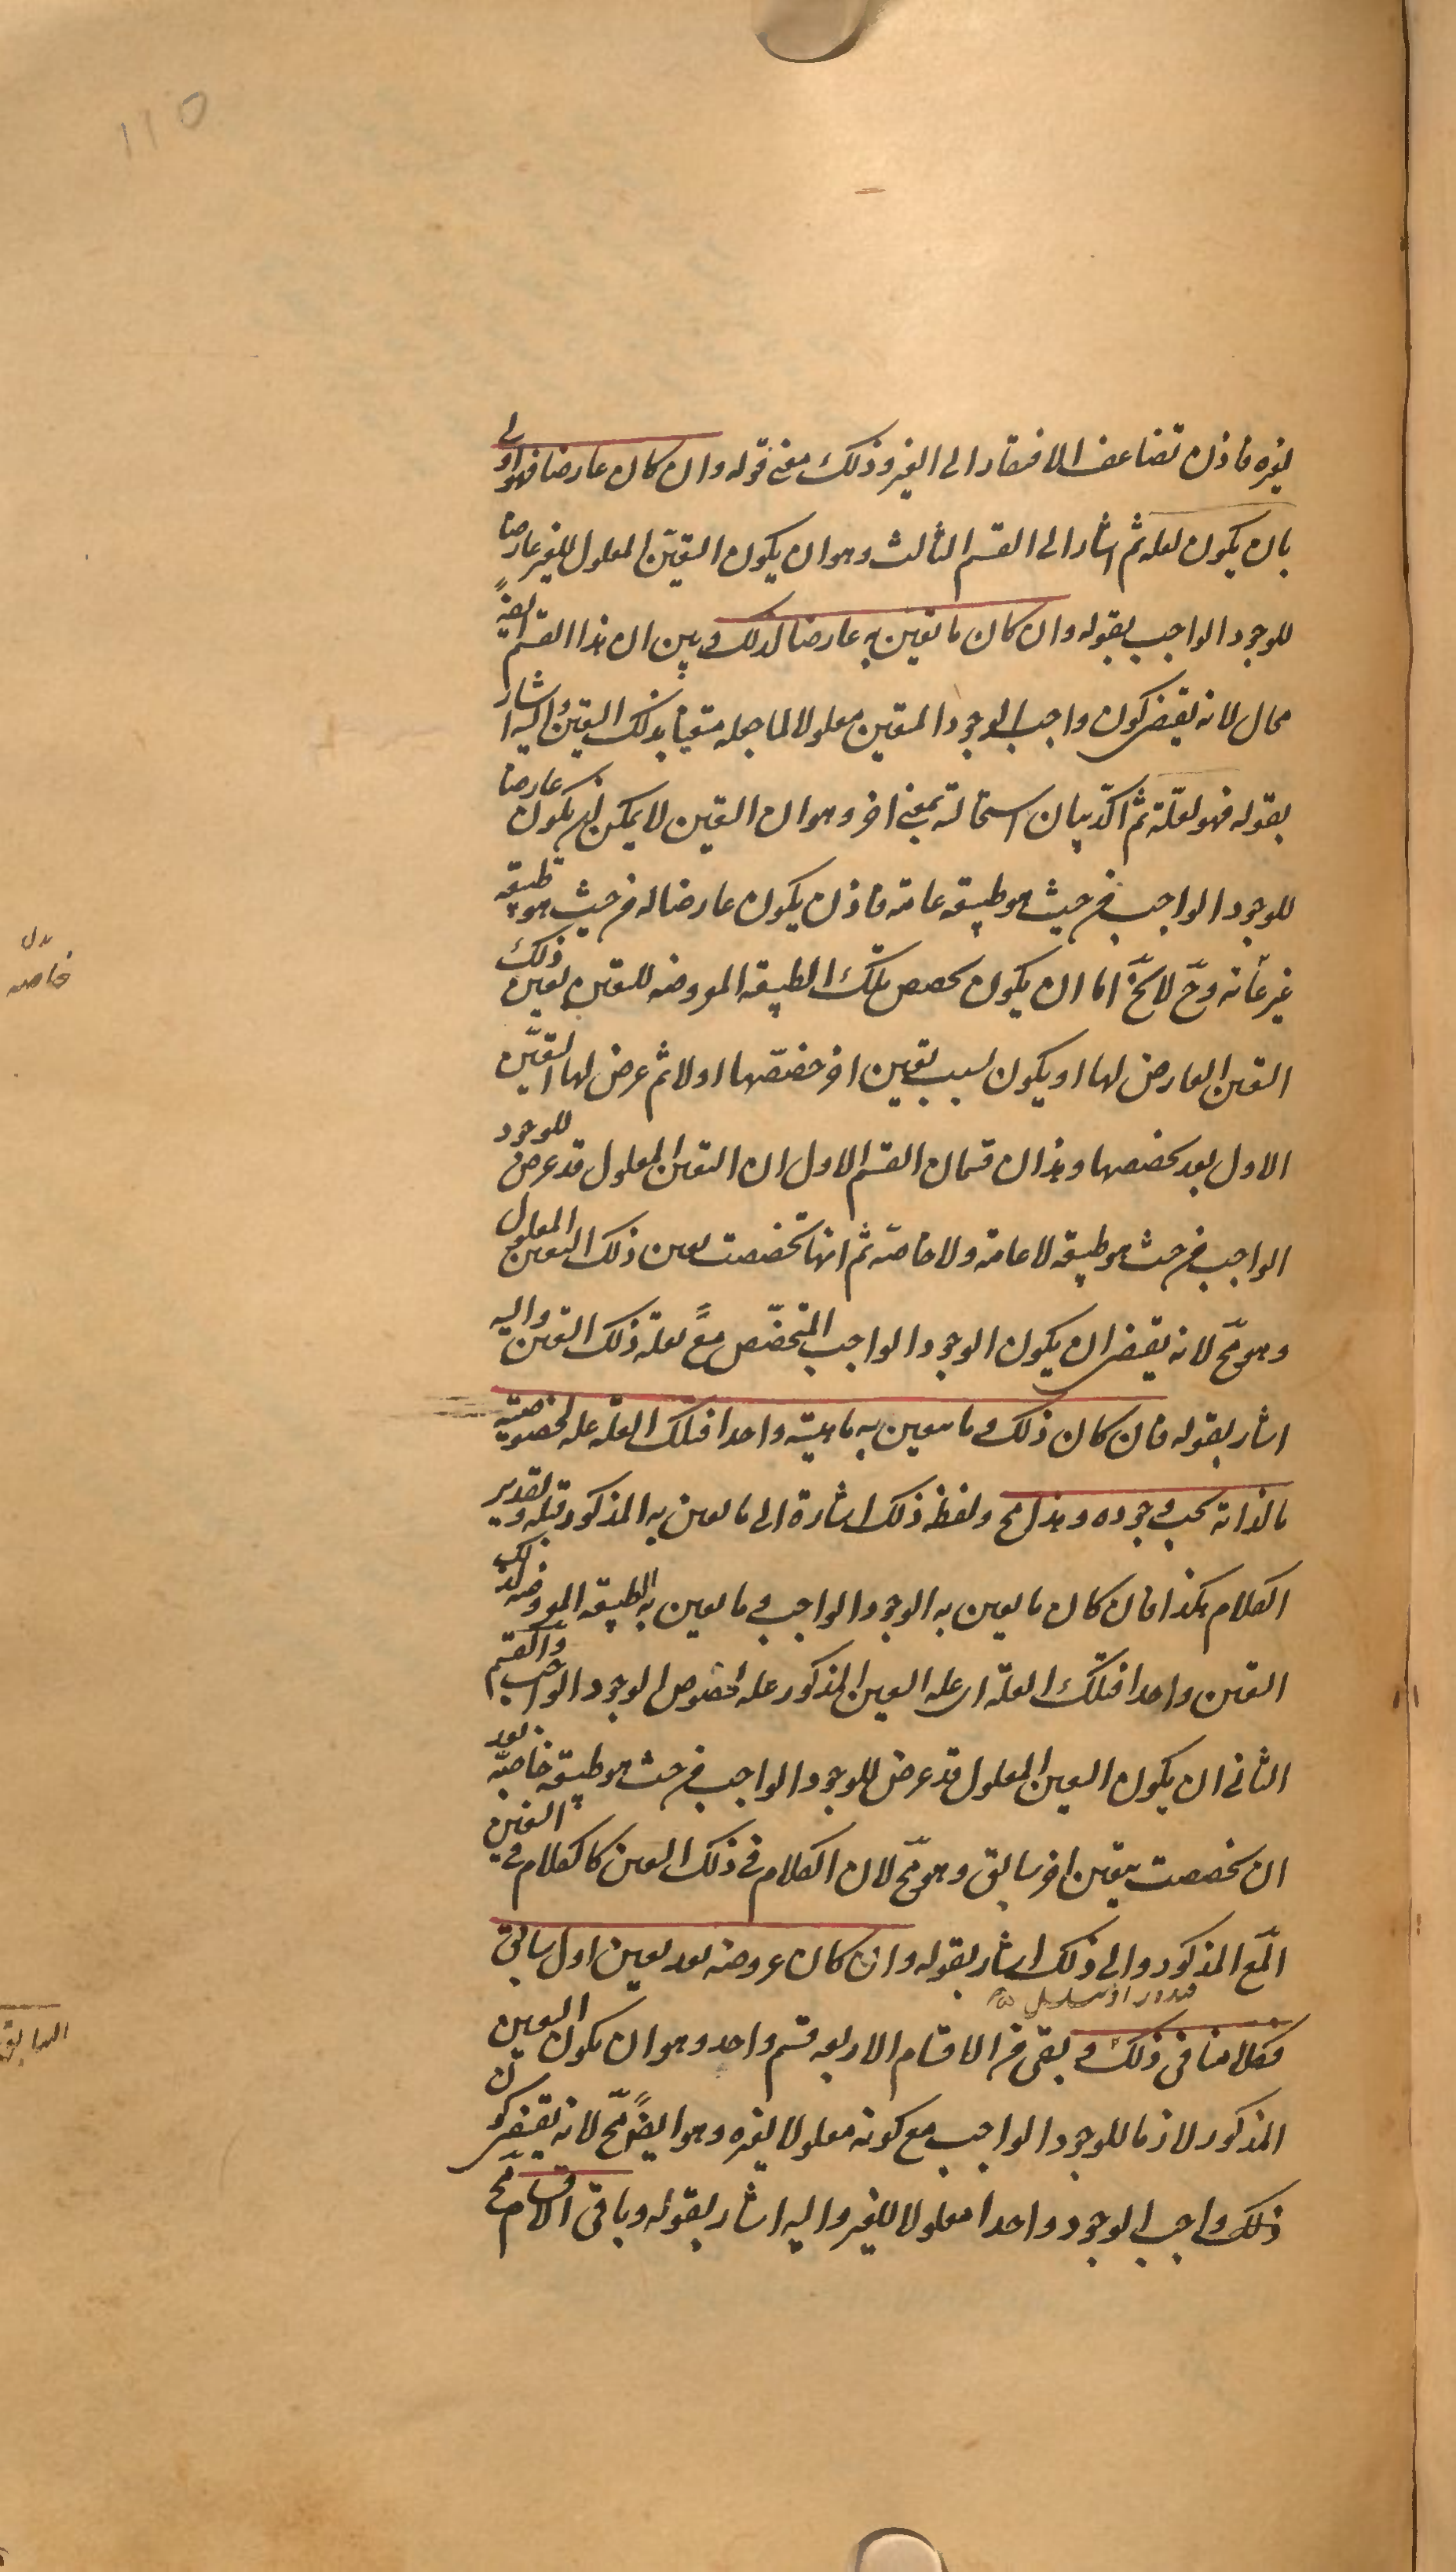 ١١٥
لغيره فاذن تضاعف الافتقار الى الغير وذلك معنى قوله وان كان عارضا فهو اولى
بان يكون لعله ثم اشار الى القسم الثالث وهو ان يكون التعيّن المعلول للغير عارضا
للوجود الواجب بقوله وان كان ما تعين به عارضا لذلك وبين ان هذا القسم ايضا
محال لانه يقتضى كون واجب الوجود المتعين معلولا لما جعله متعينا بذلك التعين واليه اشار
بقوله فهو لعلّة ثم اكدّ بيان استحالته بمعنى اخر وهو ان التعين لا يمكن ان يكون عارضا
للوجود الواجب من حيث هو طبيعة عامة فاذن يكون عارضا له من حيث هو طبيعة
غير عامّة وحّ لا يخّ اما ان يكون تخصص تلك الطبيعة المعروضه للتعين بعين ذلك
التعين العارض لها او يكون بسبب تعين اخر خصّصها اولا ثم عرض لها التعيّن
الاول بعد تخصصها وهذان قسمان القسم الاول ان التعين المعلول قد عرض للوجود
الواجب من حيث هو طبيعة لا عامة ولا خاصّة ثم انها تخصصت بعين ذلك التعين المعلول
وهو مّح لانه يقتضى ان يكون الوجود الواجب المتخصّص مع لعلة ذلك التعين واليه
اشار بقوله فان كان ذلك وما يتعين به ماهيته واحدا فتلك العلّة علة لخصوصية
مالذاته يجب وجوده وهذا مح ولفظ ذلك اشارة الى ما تعين به المذكور قبله وتقدير
الكلام هكذا فان كان ما تعين به الوجود الواجب وما تعين به الطبيعة المعروضه لذلك
التعين واحدا فتلك العلّة اى علة التعين المذكور علة لخصوص الوجود الواجب والقسم
الثانى ان يكون التعين المعلول قد عرض للوجود الواجب من حيث هو طبيعة خاصّة بعد
ان تخصصت بتعين اخر سابق وهو مّح لان الكلام فى ذلك التعين كالكلام فى التعين
المّع المذكور والى ذلك اشار بقوله وان كان عروضه بعد تعين اول سابق
فيدور او يتسلسل
فكلامنا فى ذلك وبقى من الاقسام الاربعه قسم واحد وهو ان يكون التعين
المذكور لازما للوجود الواجب مع كونه معلولا لغيره وهو ايضا مّح لانه يقتضى كون
ذلك واجب الوجود واحدا معلولا للغير واليه اشار بقوله وباقى الاقسام مّح
خاصه
السابق